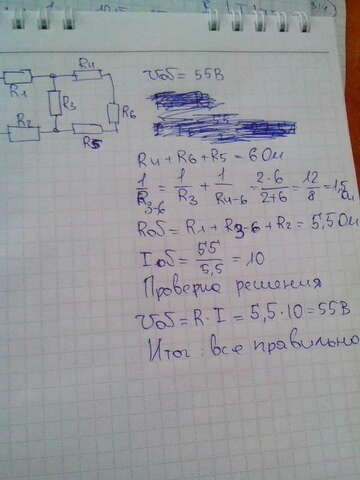 R1
R4
R3
R6
R2
R5
Uоб = 55В
R4 + R6 + R5 = 6 Ом
1/R3-6 = 1/R3 + 1/R4-6 = 2·6/2+6 = 12/8 = 1,5 Ом
Rоб = R1 + R3-6 + R2 = 5,5 Ом
Iоб = 55/5,5 = 10
Проверка решения
Uоб = R·I = 5,5·10 = 55В
Итог: все правильно